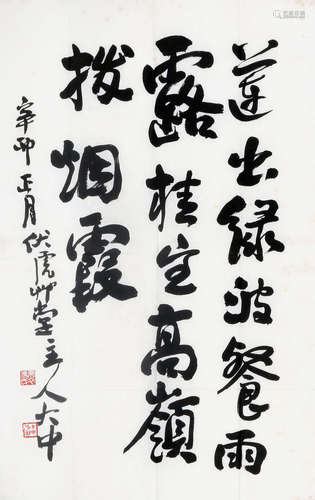 蓮出緑波餐雨
露桂生高嶺
拨烟霞
辛卯正月伏虎艸堂主人大中